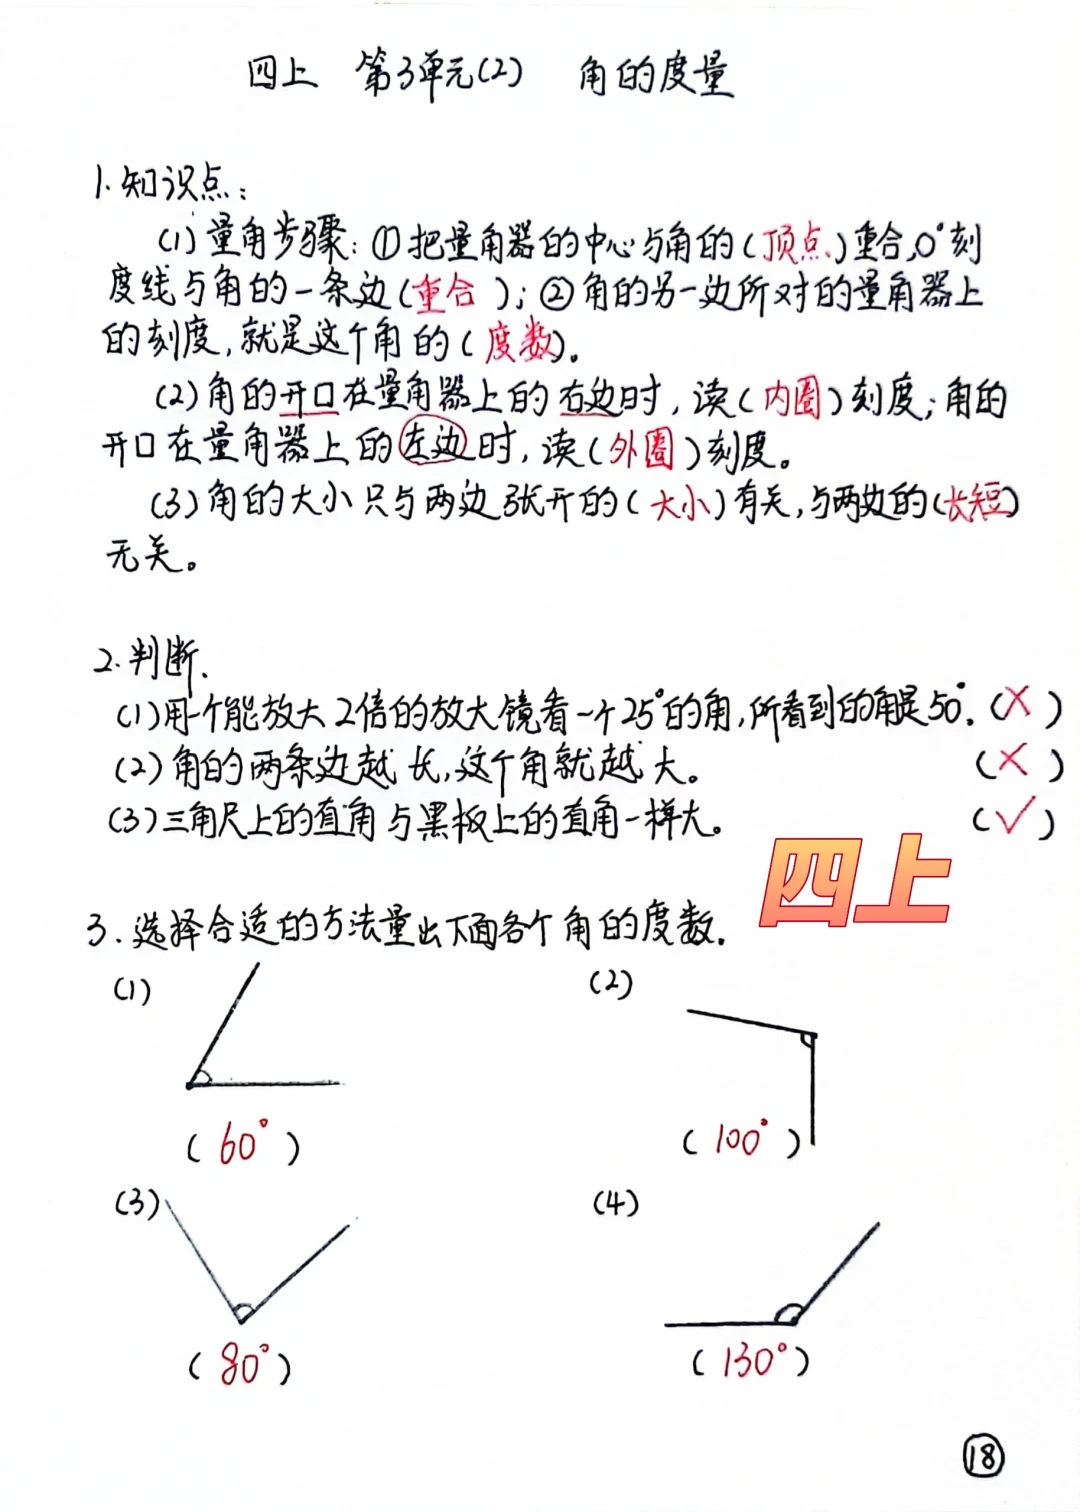 四上 第3单元(2) 角的度量
1.知识点:
(1)量角步骤:①把量角器的中心与角的(顶点)重合,0°刻
度线与角的一条边(重合);②角的另一边所对的量角器上
的刻度,就是这个角的(度数)。
(2)角的开口在量角器上的右边时,读(内圈)刻度;角的
开口在量角器上的左边时,读(外圈)刻度。
(3)角的大小只与两边张开的(大小)有关,与两边的(长短)
无关。
2.判断.
(1)用一个能放大2倍的放大镜看一个25°的角,所看到的角是50°.(×)
(2)角的两条边越长,这个角就越大。(×)
(3)三角尺上的直角与黑板上的直角一样大。(✓)
四上
3.选择合适的方法量出下面各个角的度数.
(1) (2)
(60°) (100°)
(3) (4)
(80°) (130°)
⑱